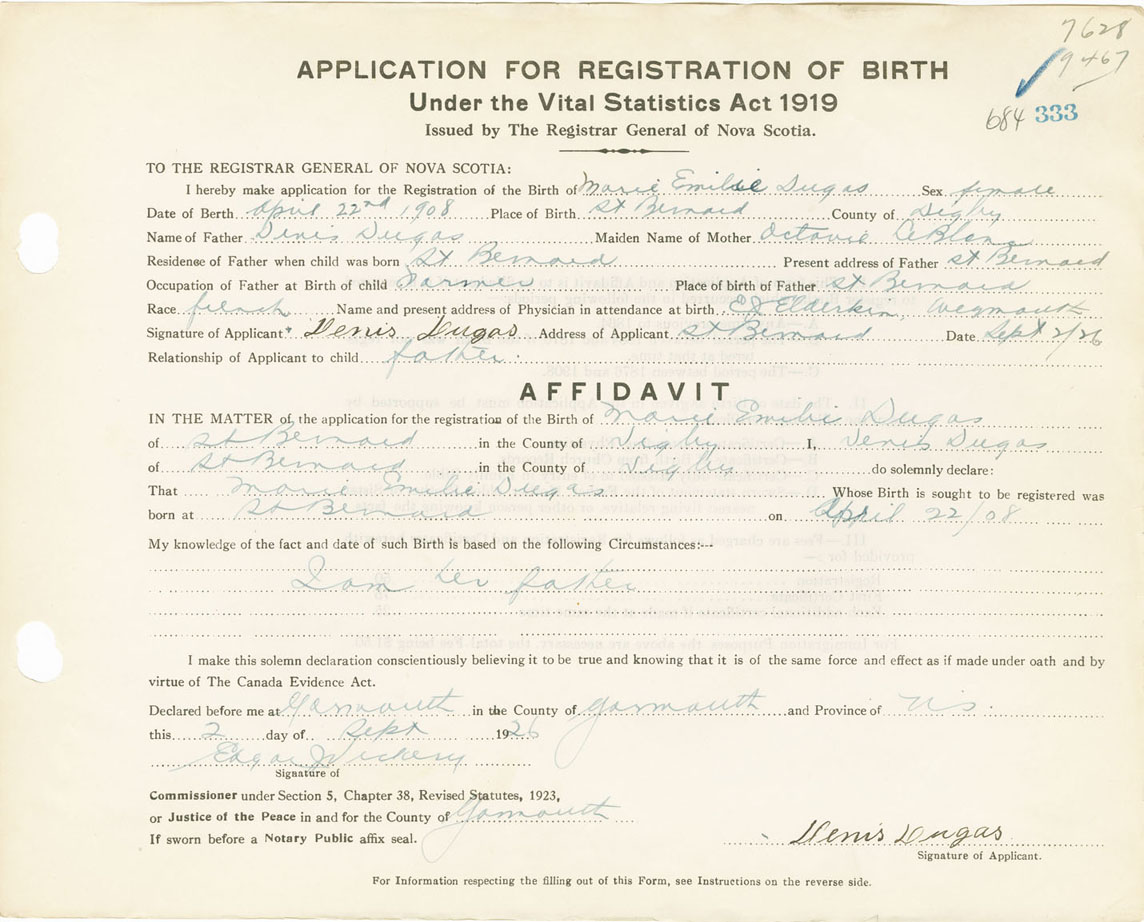 7628
9467
684 333
APPLICATION FOR REGISTRATION OF BIRTH
Under the Vital Statistics Act 1919
Issued by The Registrar General of Nova Scotia.
TO THE REGISTRAR GENERAL OF NOVA SCOTIA:
I hereby make application for the Registration of the Birth of Marie Emilie Dugas Sex female
Date of Berth April 22nd 1908 Place of Birth St Bernard County of Digby
Name of Father Denis Dugas Maiden Name of Mother Octavie LeBlanc
Residense of Father when child was born St Bernard Present address of Father St Bernard
Occupation of Father at Birth of child Farmer Place of birth of Father St Bernard
Race french Name and present address of Physician in attendance at birth EJ Elderkin, Wegmouth
Signature of Applicant* Denis Dugas Address of Applicant St Bernard Date Sept 2/26
Relationship of Applicant to child father
AFFIDAVIT
IN THE MATTER of, the application for the registration of the Birth of Marie Emilie Dugas
of St Bernard in the County of Digby I, Denis Dugas
of St Bernard in the County of Digby do solemnly declare:
That Marie Emilie Dugas Whose Birth is sought to be registered was
born at St Bernard on April 22/08
My knowledge of the fact and date of such Birth is based on the following Circumstances:---
I am her father
I make this solemn declaration conscientiously believing it to be true and knowing that it is of the same force and effect as if made under oath and by
virtue of The Canada Evidence Act.
Declared before me at Yarmouth in the County of Yarmouth and Province of N.S.
this 2 day of Sept 1926
Edgar Vickery
Signature of
Commissioner under Section 5, Chapter 38, Revised Statutes, 1923,
or Justice of the Peace in and for the County of Yarmouth
If sworn before a Notary Public affix seal.
Denis Dugas
Signature of Applicant.
For Information respecting the filling out of this Form, see Instructions on the reverse side.